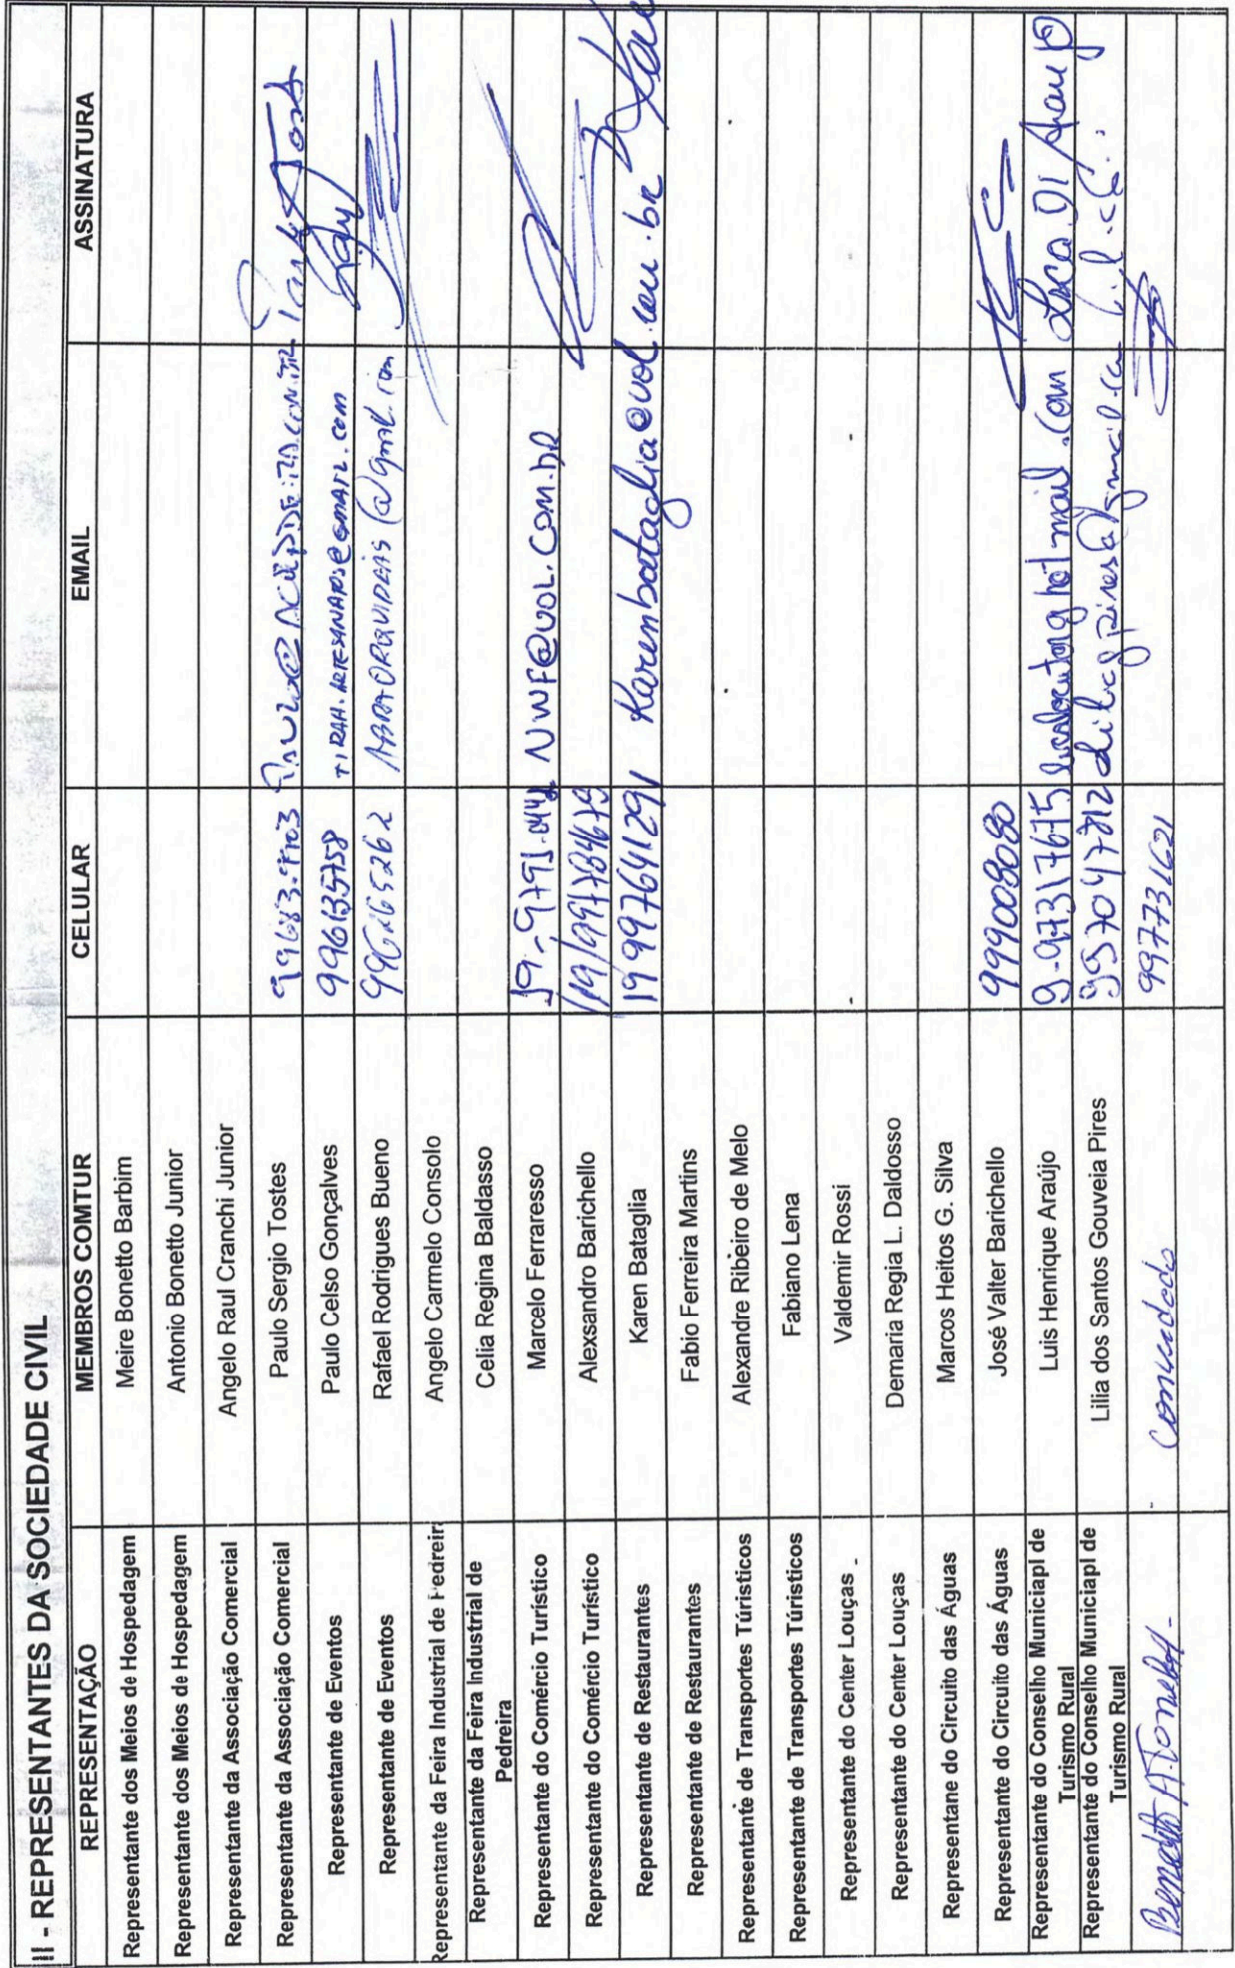 II - REPRESENTANTES DA SOCIEDADE CIVIL
REPRESENTAÇÃO MEMBROS COMTUR CELULAR EMAIL ASSINATURA
Representante dos Meios de Hospedagem Meire Bonetto Barbim
Representante dos Meios de Hospedagem Antonio Bonetto Junior
Representante da Associação Comercial Angelo Raul Cranchi Junior
Representante da Associação Comercial Paulo Sergio Tostes
Representante de Eventos Paulo Celso Gonçalves 996135758 TIRAH.ARTESANARS@GMAIL.COM
Representante de Eventos Rafael Rodrigues Bueno 996265262
Representante da Feira Industrial de Pedreira Angelo Carmelo Consolo
Representante da Feira Industrial de
Pedreira Celia Regina Baldasso
Representante do Comércio Turístico Marcelo Ferraresso NWF@UOL.COM.BR
Representante do Comércio Turístico Alexsandro Barichello /19/991784679
Representante de Restaurantes Karen Bataglia 19997641291 Karenbataglia@uol.com.br Kare
Representante de Restaurantes Fabio Ferreira Martins
Representante de Transportes Túristicos Alexandre Ribeiro de Melo
Representante de Transportes Túristicos Fabiano Lena
Representante do Center Louças - Valdemir Rossi
Representante do Center Louças Demaria Regia L. Daldosso
Representane do Circuito das Águas Marcos Heitos G. Silva
Representante do Circuito das Águas José Valter Barichello 999008080
Representante do Conselho Municiapl de
Turismo Rural Luis Henrique Araújo 9-97317675 hotmail.com Araujo
Representante do Conselho Municiapl de
Turismo Rural Lilia dos Santos Gouveia Pires 997047812
Benedito A. - Convidado 997731621